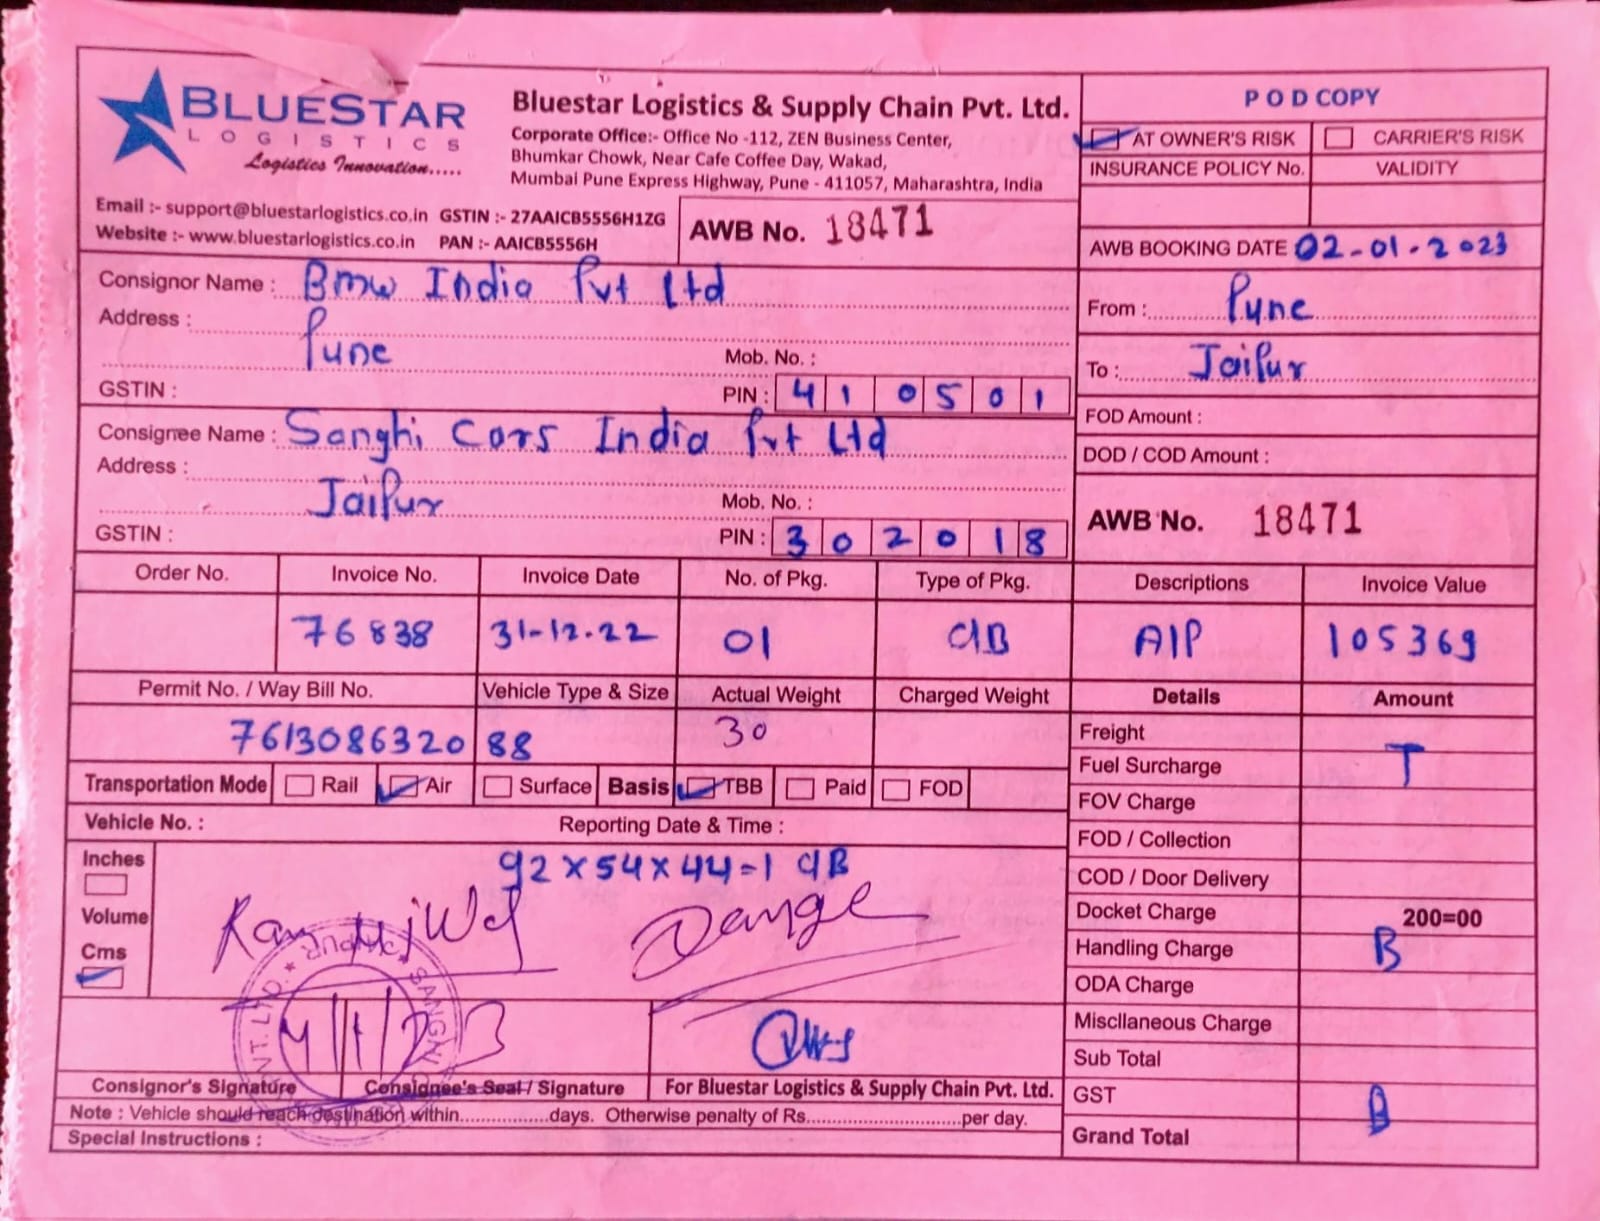 BLUESTAR
LOGISTICS
Logistics Innovation.....
Bluestar Logistics & Supply Chain Pvt. Ltd.
Corporate Office:- Office No -112, ZEN Business Center,
Bhumkar Chowk, Near Cafe Coffee Day, Wakad,
Mumbai Pune Express Highway, Pune - 411057, Maharashtra, India
Email :- support@bluestarlogistics.co.in GSTIN :- 27AAICB5556H1ZG
Website :- www.bluestarlogistics.co.in PAN :- AAICB5556H
AWB No. 18471
P O D COPY
AT OWNER'S RISK CARRIER'S RISK
INSURANCE POLICY No. VALIDITY
AWB BOOKING DATE 02-01-2023
Consignor Name : Bmw India Pvt Ltd
Address :
Pune Mob. No. :
GSTIN : PIN : 410501
From : Pune
To : Jaipur
FOD Amount :
DOD / COD Amount :
Consignee Name : Sanghi Cars India Pvt Ltd
Address :
Jaipur Mob. No. :
GSTIN : PIN : 302018
AWB No. 18471
Order No. Invoice No. Invoice Date No. of Pkg. Type of Pkg. Descriptions Invoice Value
76838 31-12-22 01 CIB AIP 105369
Permit No. / Way Bill No. Vehicle Type & Size Actual Weight Charged Weight Details Amount
761308632088 30
Transportation Mode Rail Air Surface Basis TBB Paid FOD
Vehicle No. : Reporting Date & Time :
Inches
Volume
Cms
92x54x44=1 CIB
4/1/23
Consignor's Signature Consignee's Seal / Signature For Bluestar Logistics & Supply Chain Pvt. Ltd.
Note : Vehicle should reach destination within..................days. Otherwise penalty of Rs...............................per day.
Special Instructions :
Freight
Fuel Surcharge T
FOV Charge
FOD / Collection
COD / Door Delivery
Docket Charge 200=00
Handling Charge B
ODA Charge
Miscllaneous Charge
Sub Total
GST B
Grand Total